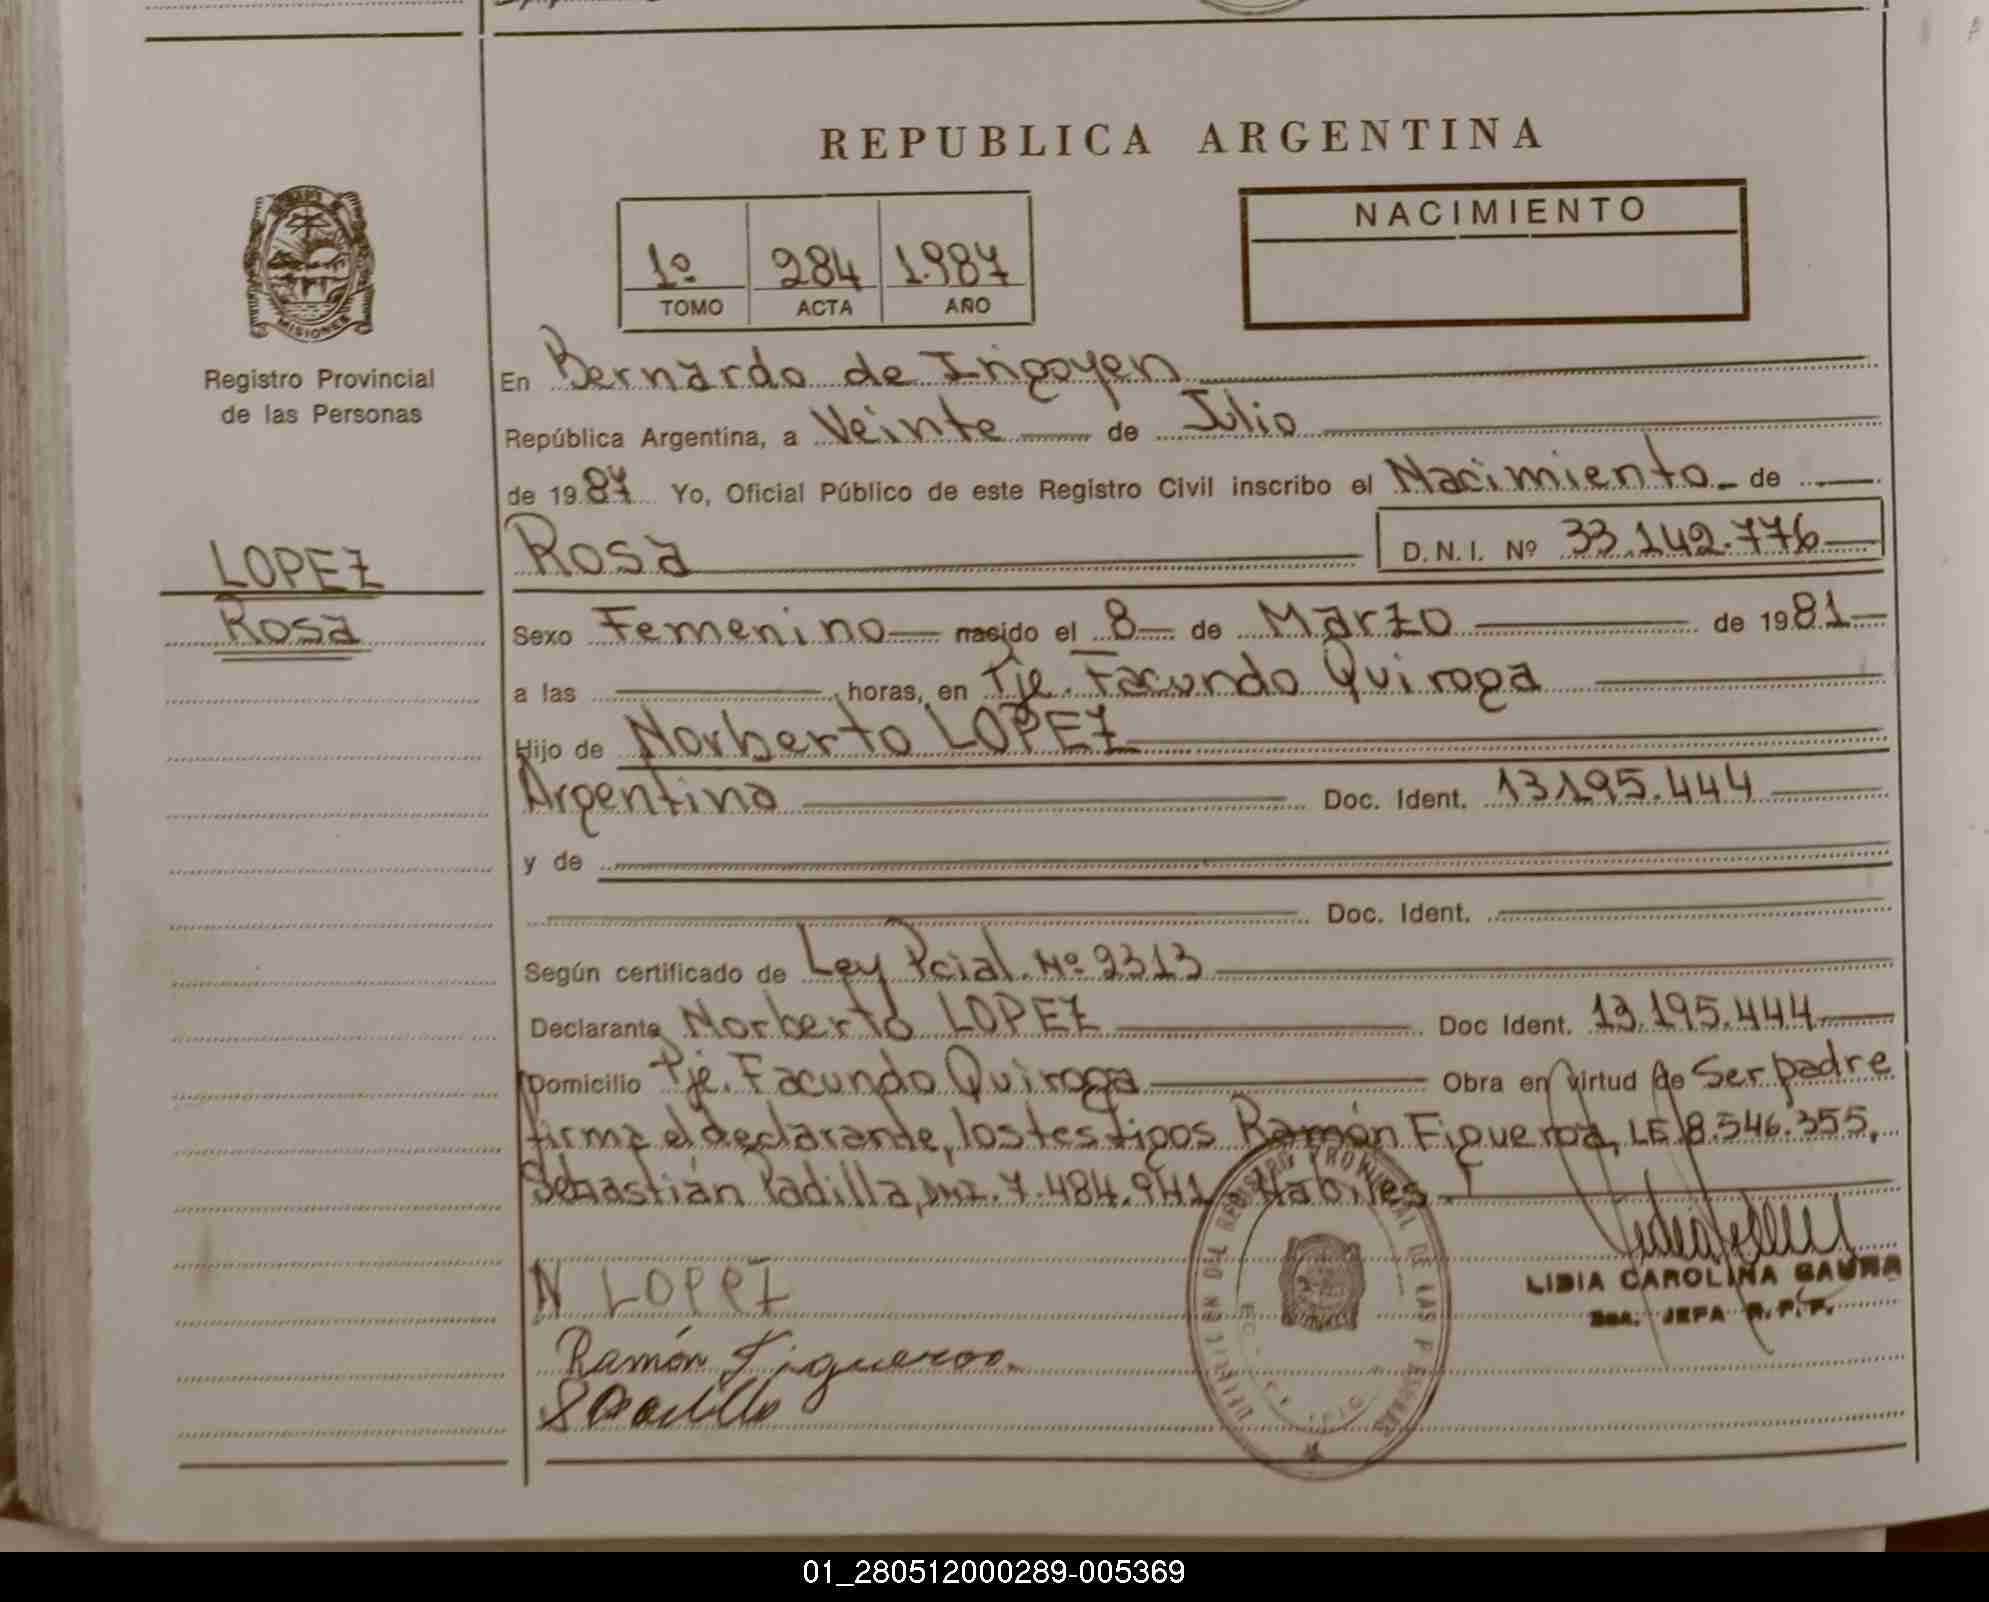 REPUBLICA ARGENTINA
NACIMIENTO
1º 284 1.987
TOMO ACTA AÑO
MISIONES
Registro Provincial
de las Personas
En Bernardo de Irigoyen
República Argentina, a Veinte de Julio
de 1987 Yo, Oficial Público de este Registro Civil inscribo el Nacimiento de
LOPEZ
Rosa
Rosa D.N.I. Nº 33.142.776
Sexo Femenino nacido el 8 de Marzo de 1981
a las horas, en Pje. Facundo Quiroga
Hijo de Norberto LOPEZ
Argentino Doc. Ident. 13.195.444
y de
Doc. Ident.
Según certificado de Ley Pcial. Nº 2313
Declarante Norberto LOPEZ Doc Ident. 13.195.444
Domicilio Pje. Facundo Quiroga Obra en virtud de Ser padre
firma el declarante, los testigos Ramón Figueroa, LE 8.546.355,
Sebastián Padilla, DNI. 7.484.941 Habiles.
N LOPEZ
LIDIA CAROLINA
JEFA R.P.P.
Ramón Figueroa
S Padilla
01_280512000289-005369